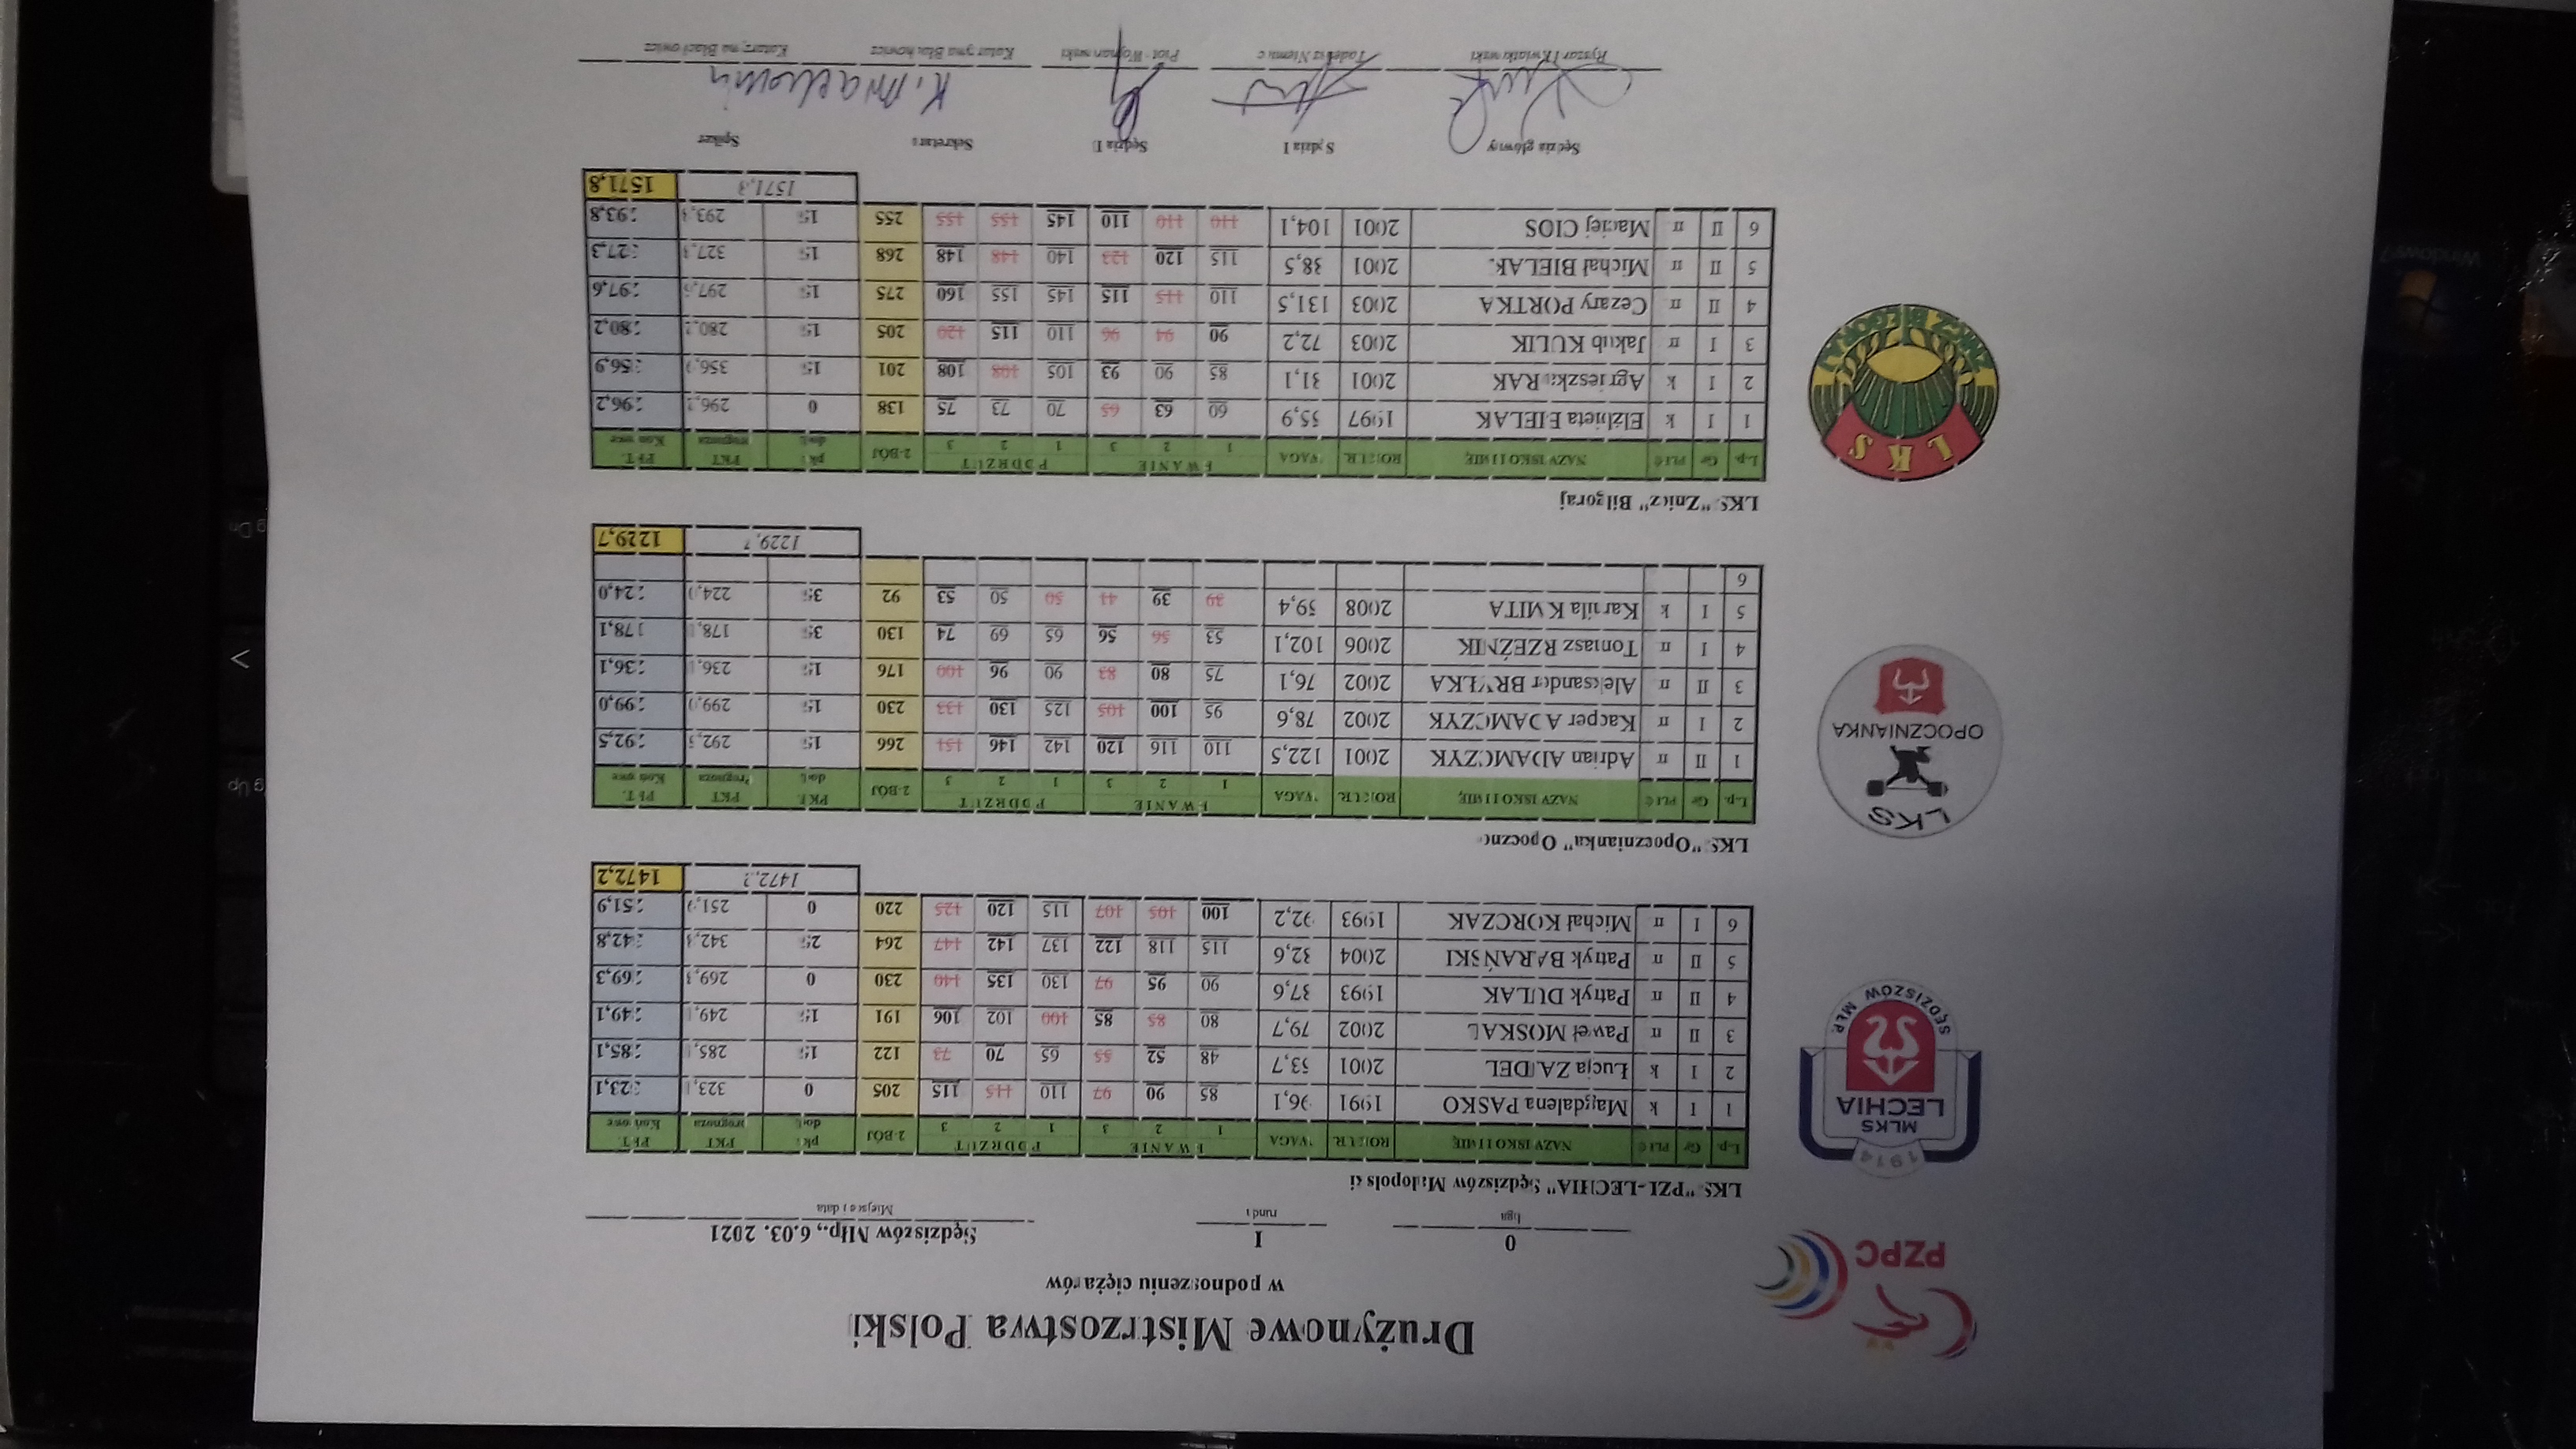 PZPC
Drużynowe Mistrzostwa Polski
w podnoszeniu ciężarów
0 I Sędziszów Młp., 6.03. 2021
liga rund Miejsce i data
LKS "PZL-LECHIA" Sędziszów Małopolski
1914
MLKS
LECHIA
SĘDZISZÓW MŁP.
L.p. Gr PŁEĆ NAZWISKO I IMIĘ ROK UR. WAGA RWANIE PODRZUT 2-BÓJ pkt PKT PKT.
1 2 3 1 2 3 dod. Prognoza Końcowe
1 I k Magdalena PASKO 1991 96,1 85 90 97 110 115 115 205 0 323,1 323,1
2 I k Łucja ZAJDEL 2001 53,7 48 52 55 65 70 73 122 15 285,1 285,1
3 II m Paweł MOSKAL 2002 79,7 80 85 85 100 102 106 191 15 249,1 249,1
4 II m Patryk DULAK 1993 87,6 90 95 97 130 135 140 230 0 269,3 269,3
5 II m Patryk BARAŃSKI 2004 82,6 115 118 122 137 142 147 264 25 342,8 342,8
6 I m Michał KORCZAK 1993 92,2 100 105 107 115 120 125 220 0 251,9 251,9
1472,2 1472,2
LKS "Opocznianka" Opoczno
LKS
OPOCZNIANKA
L.p. Gr PŁEĆ NAZWISKO I IMIĘ ROK UR. WAGA RWANIE PODRZUT 2-BÓJ PKT PKT PKT.
1 2 3 1 2 3 dod. Prognoza Końcowe
1 II m Adrian ADAMCZYK 2001 122,5 110 116 120 142 146 151 266 15 292,5 292,5
2 I m Kacper ADAMCZYK 2002 78,6 95 100 105 125 130 133 230 15 299,0 299,0
3 II m Aleksander BRYŁKA 2002 76,1 75 80 83 90 96 100 176 15 236,1 236,1
4 I m Tomasz RZEŹNIK 2006 102,1 53 56 56 65 69 74 130 35 178,1 178,1
5 I k Kamila KMITA 2008 59,4 39 39 41 50 50 53 92 35 224,0 224,0
6
1229,7 1229,7
LKS "Znicz" Biłgoraj
LKS
ZNICZ BIŁGORAJ
L.p. Gr PŁEĆ NAZWISKO I IMIĘ ROK UR. WAGA RWANIE PODRZUT 2-BÓJ pkt PKT PKT.
1 2 3 1 2 3 dod. Prognoza Końcowe
1 I k Elżbieta BIELAK 1997 55,9 60 63 65 70 73 75 138 0 296,2 296,2
2 I k Agnieszka RAK 2001 81,1 85 90 93 105 108 108 201 15 356,9 356,9
3 I m Jakub KULIK 2003 72,2 90 94 96 110 115 120 205 15 280,2 280,2
4 II m Cezary PORTKA 2003 131,5 110 115 115 145 155 160 275 15 297,6 297,6
5 II m Michał BIELAK 2001 88,5 115 120 123 140 148 148 268 15 327,3 327,3
6 II m Maciej CIOS 2001 104,1 110 110 110 145 155 155 255 15 293,8 293,8
1571,8 1571,8
Sędzia główny Sędzia I Sędzia II Sekretarz Spiker
Ryszard Kwiatkowski Tadeusz Niemiec Piotr Wojnarowski Katarzyna Błachowicz Katarzyna Błachowicz